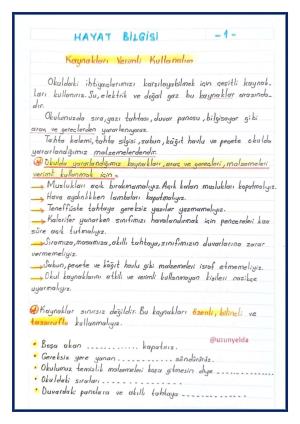 HAYAT BİLGİSİ -1-
Kaynakları Verimli Kullanalım
Okuldaki ihtiyaçlarımızı karşılayabilmek için çeşitli kaynak-
ları kullanırız. Su, elektrik ve doğal gaz bu kaynaklar arasında-
dır.
Okulumuzda sıra, yazı tahtası, duvar panosu, bilgisayar gibi
araç ve gereçlerden yararlanıyoruz.
Tahta kalemi, tahta silgisi, sabun, kâğıt havlu ve peçete okulda
yararlandığımız malzemelerdendir.
Okulda yararlandığımız kaynakları, araç ve gereçleri, malzemeleri
verimli kullanmak için;
Muslukları açık bırakmamalıyız. Açık kalan muslukları kapatmalıyız.
Hava aydınlıkken lambaları kapatmalıyız.
Teneffüste tahtaya gereksiz yazılar yazmamalıyız.
Kalorifer yanarken sınıfımızı havalandırmak için pencereleri kısa
süre açık tutmalıyız.
Sıramıza, masamıza, akıllı tahtaya, sınıfımızın duvarlarına zarar
vermemeliyiz.
Sabun, peçete ve kâğıt havlu gibi malzemeleri israf etmemeliyiz.
Okul kaynaklarını etkili ve verimli kullanmayan kişileri nasikçe
uyarmalıyız.
Kaynaklar sınırsız değildir. Bu kaynakları özenli, bilinçli ve
tasarruflu kullanmalıyız.
@uzunyelda
Boşa akan .......... kapatırız.
Gereksiz yere yanan .......... söndürürüz.
Okulumuz temizlik malzemeleri boşa gitmesin diye ..........
Okuldaki sıraları ..........
Duvarlardaki panolara ve akıllı tahtaya ..........